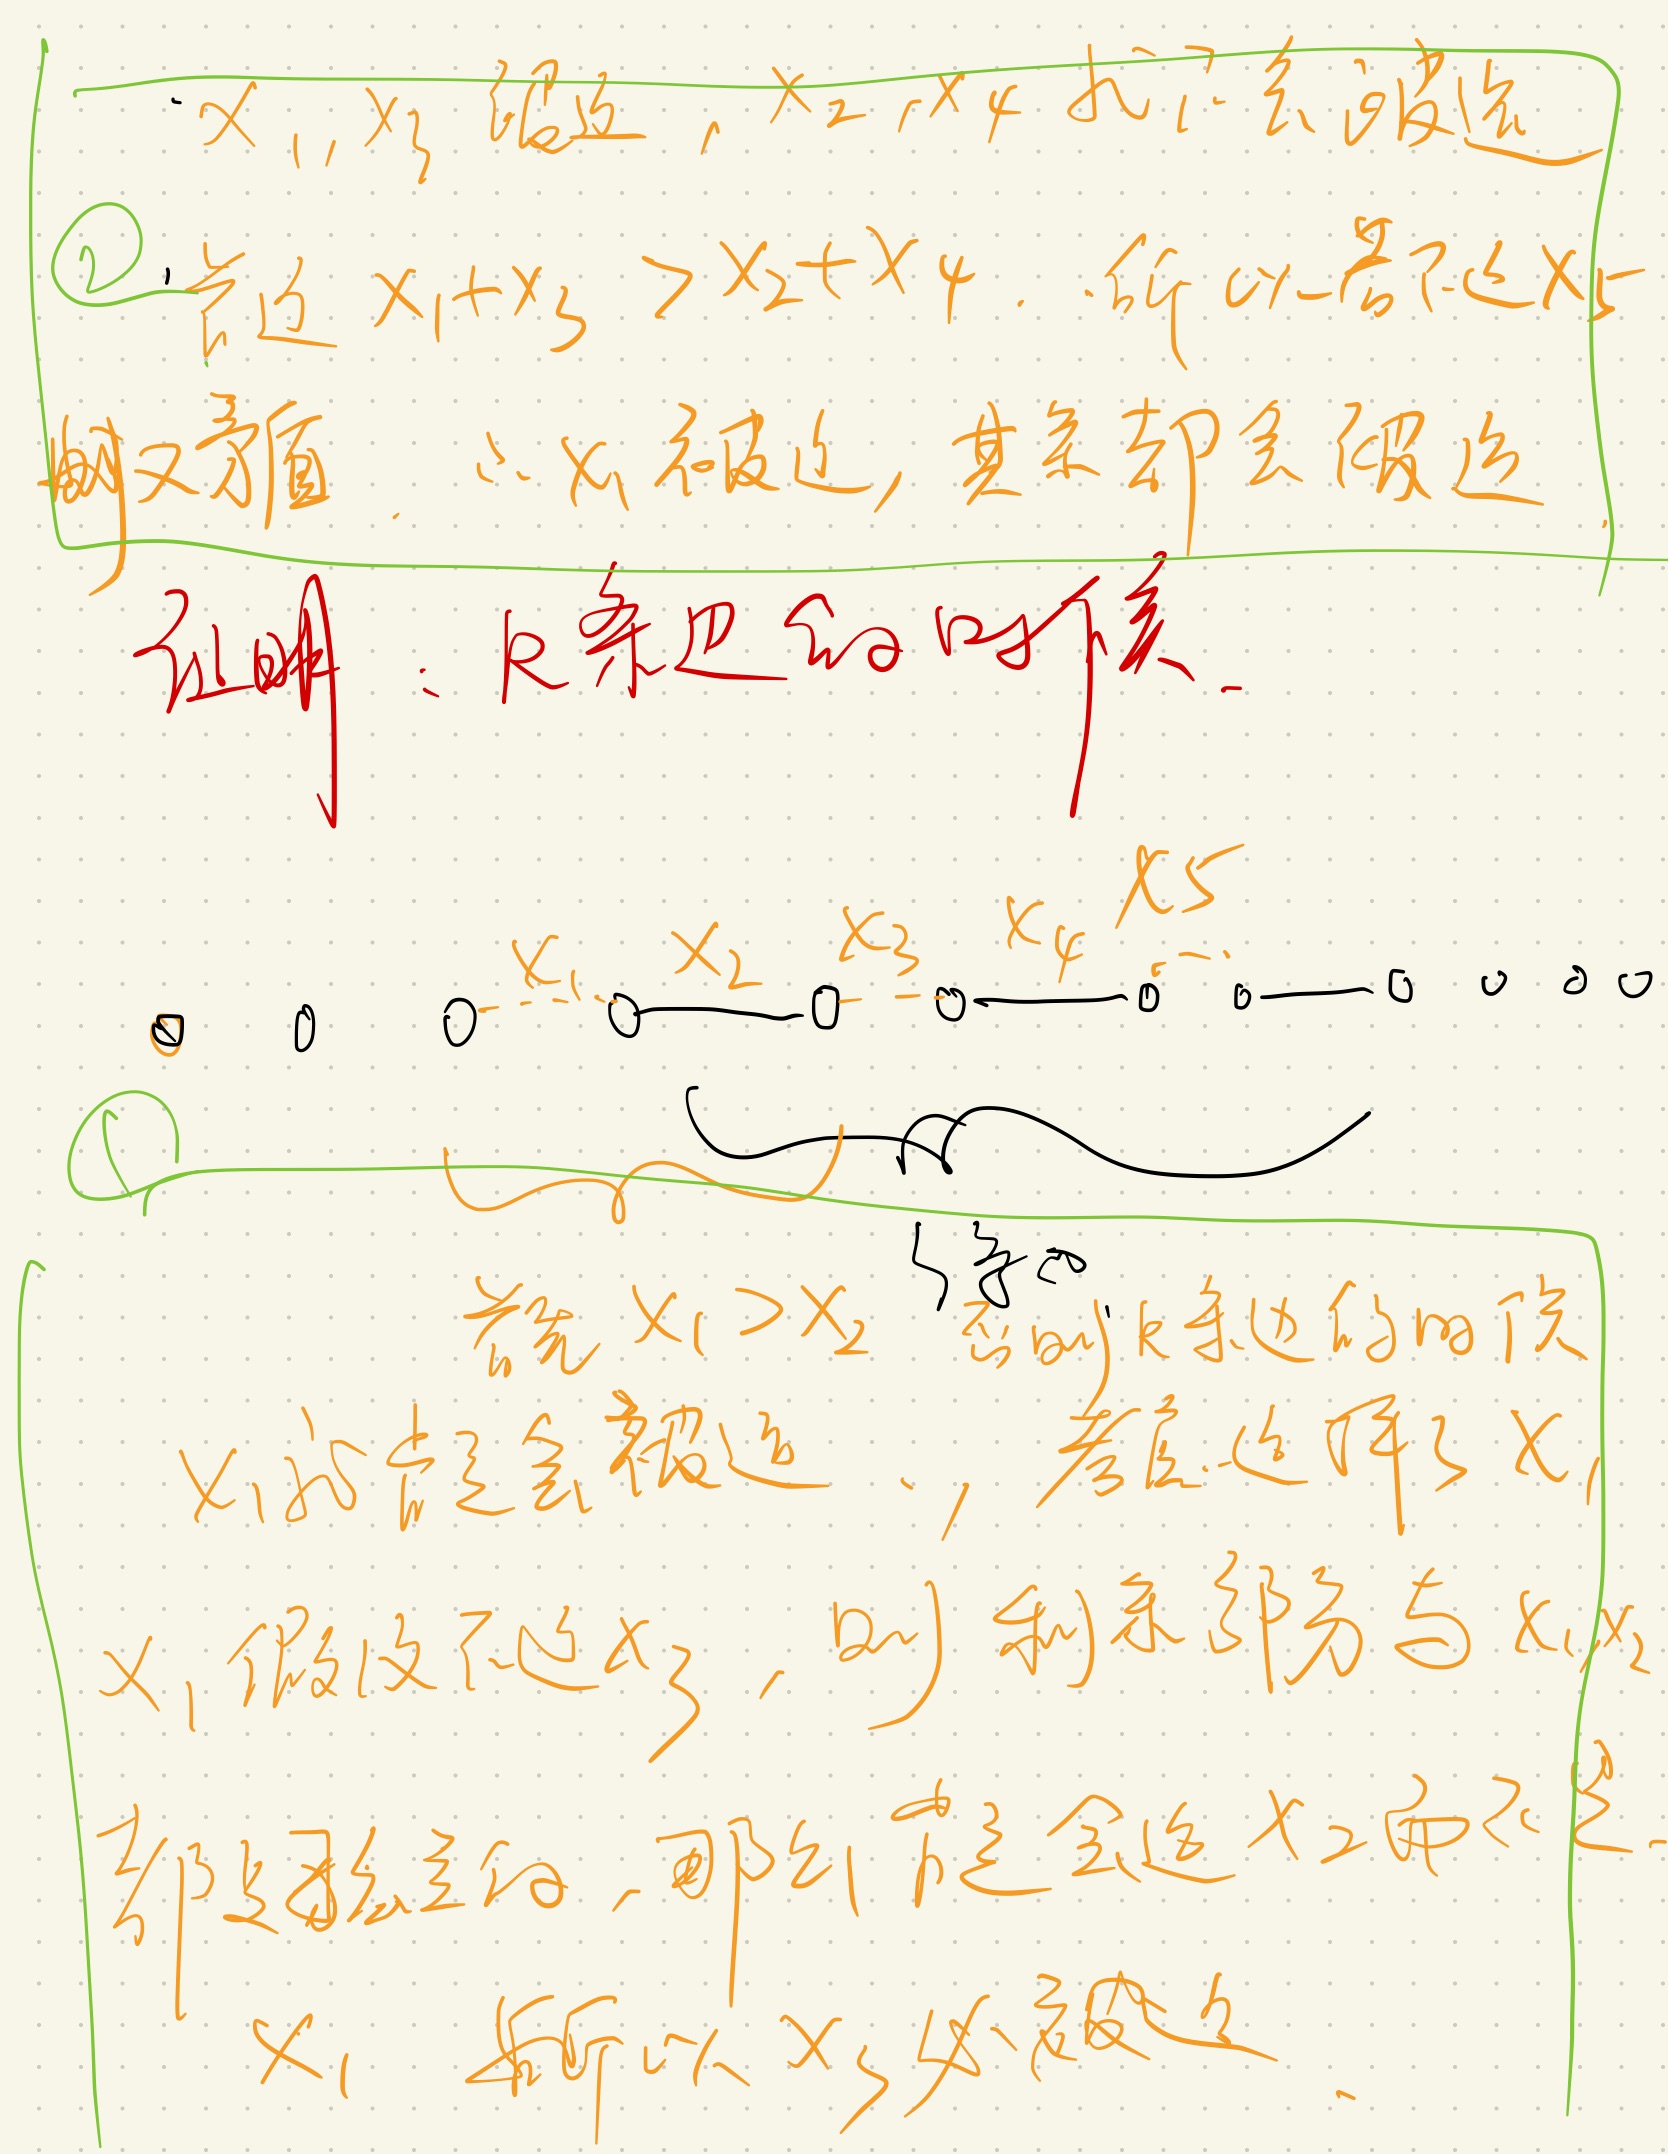 x1, x3 被选, x2, x4 才不会被选
② 首选 x1+x3 > x2+x4. 所以若不选 x5
则又矛盾. ∴ x1 被选, 其余却会被选.
证明: k条边的时候.
x1 x2 x3 x4 x5
①
首先 x1 > x2 否则 k条边的时候
x1 肯定会被选, 考虑选择了 x1
x1 假设不选 x3, 则剩余部分与 x1, x2
都是独立的, 那么肯定会选 x2 而不是
x1 所以 x3 必被选.